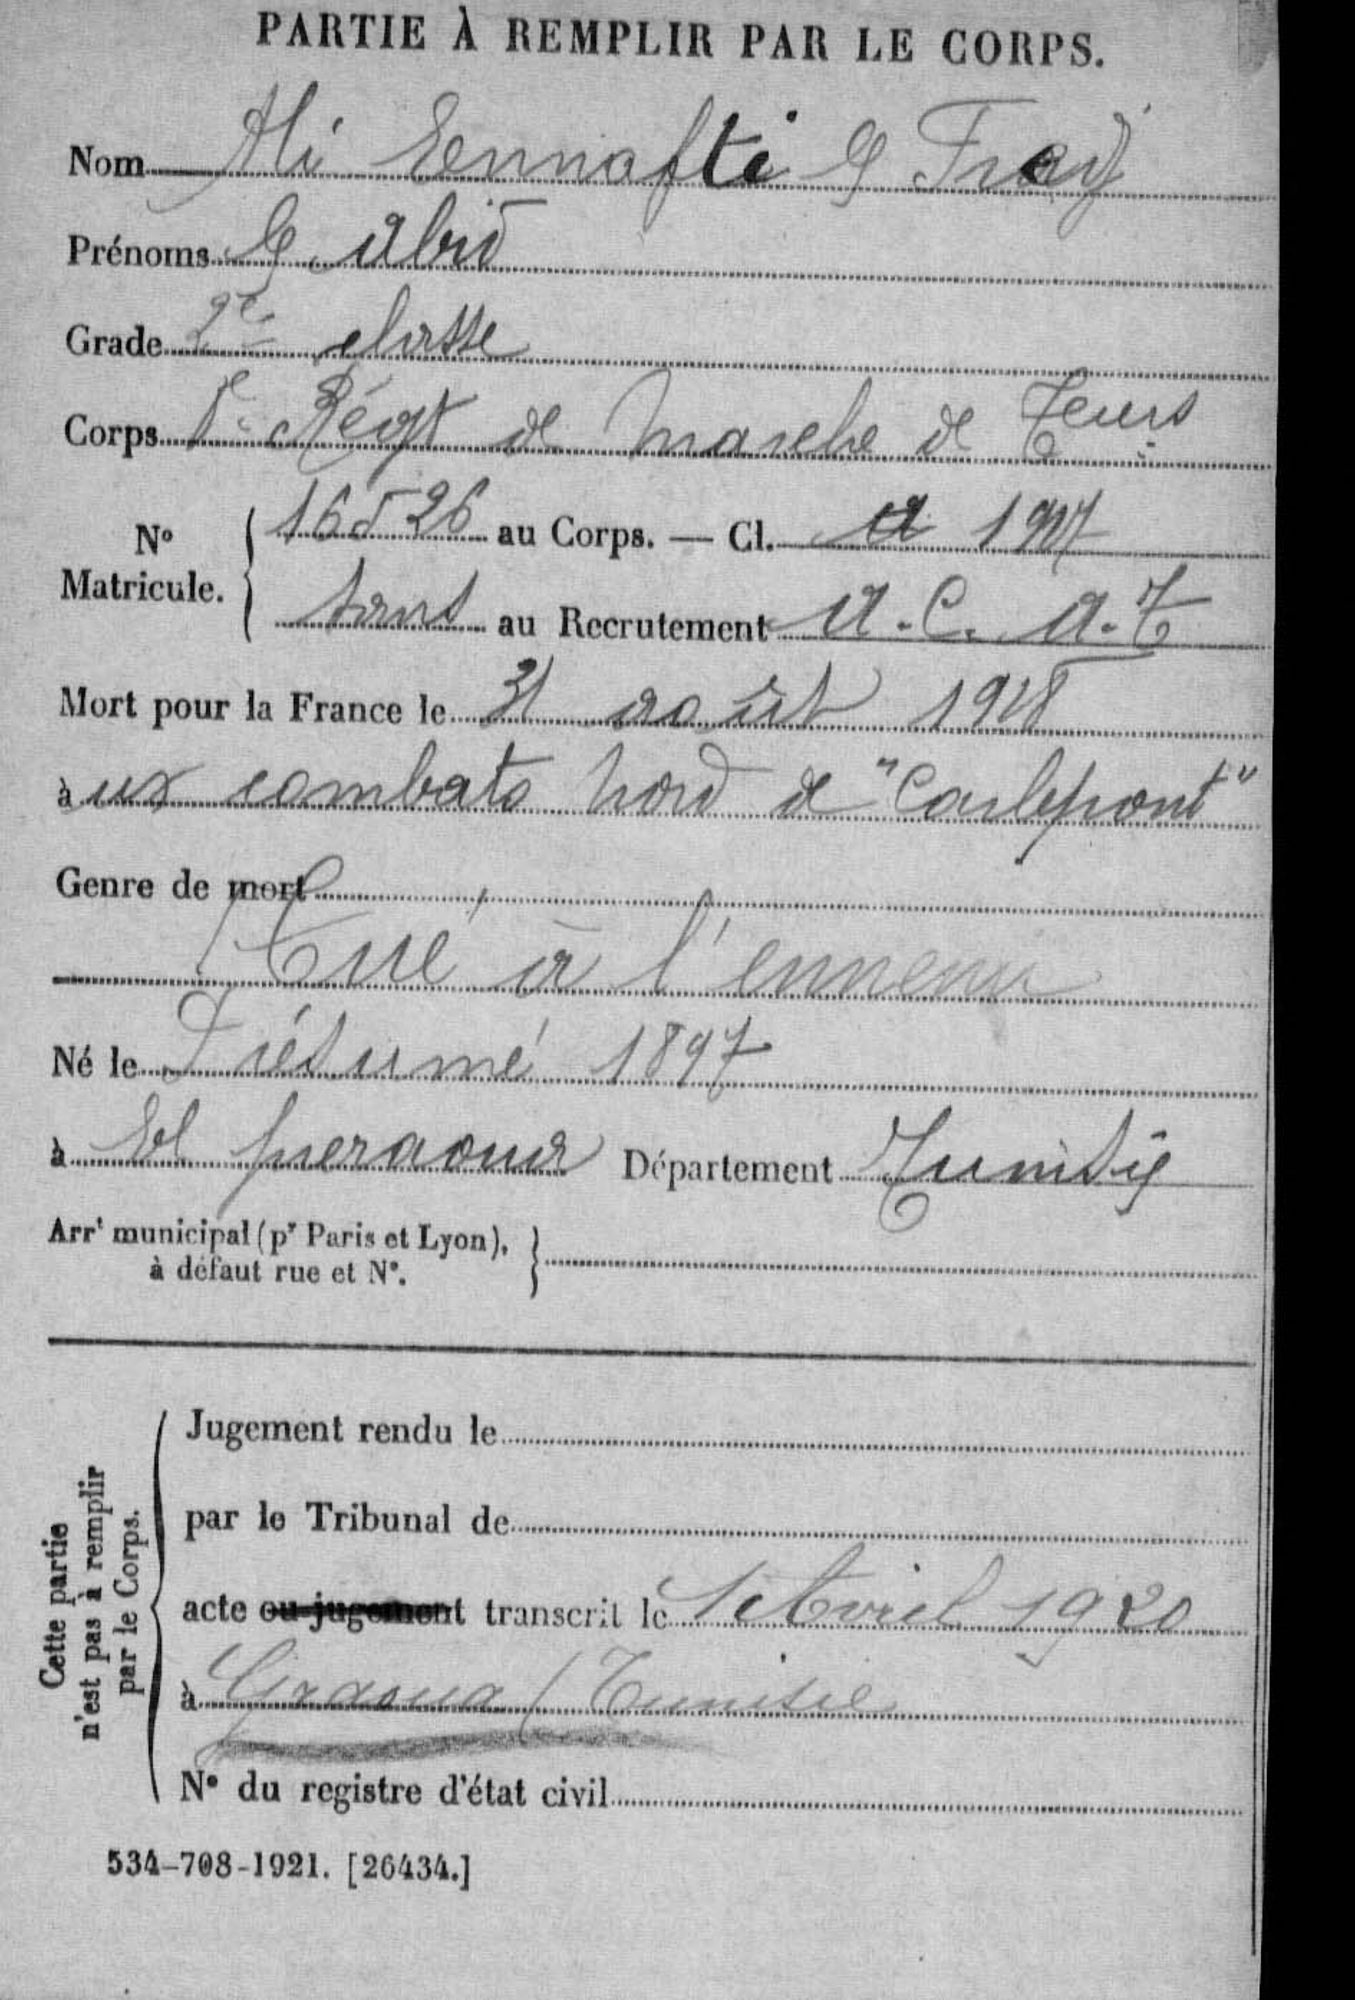 PARTIE À REMPLIR PAR LE CORPS.
Nom Ali Ennafti B Fredj
Prénoms B Abid
Grade 2e classe
Corps Régt de Marche de Teurs
No Matricule. 16526 au Corps. — Cl. 1917
sans au Recrutement A. C. A. T
Mort pour la France le 31 août 1918
à ux combats Nord de "Carlepont"
Genre de mort
Tué à l'ennemi
Né le Présumé 1897
à El Département Tunisie
Arrt municipal (pr Paris et Lyon),
à défaut rue et No.
Cette partie
n'est pas à remplir
par le Corps.
Jugement rendu le
par le Tribunal de
acte ou jugement transcrit le 1e Avril 1920
à Graoua (Tunisie
No du registre d'état civil
534-708-1921. [26434.]